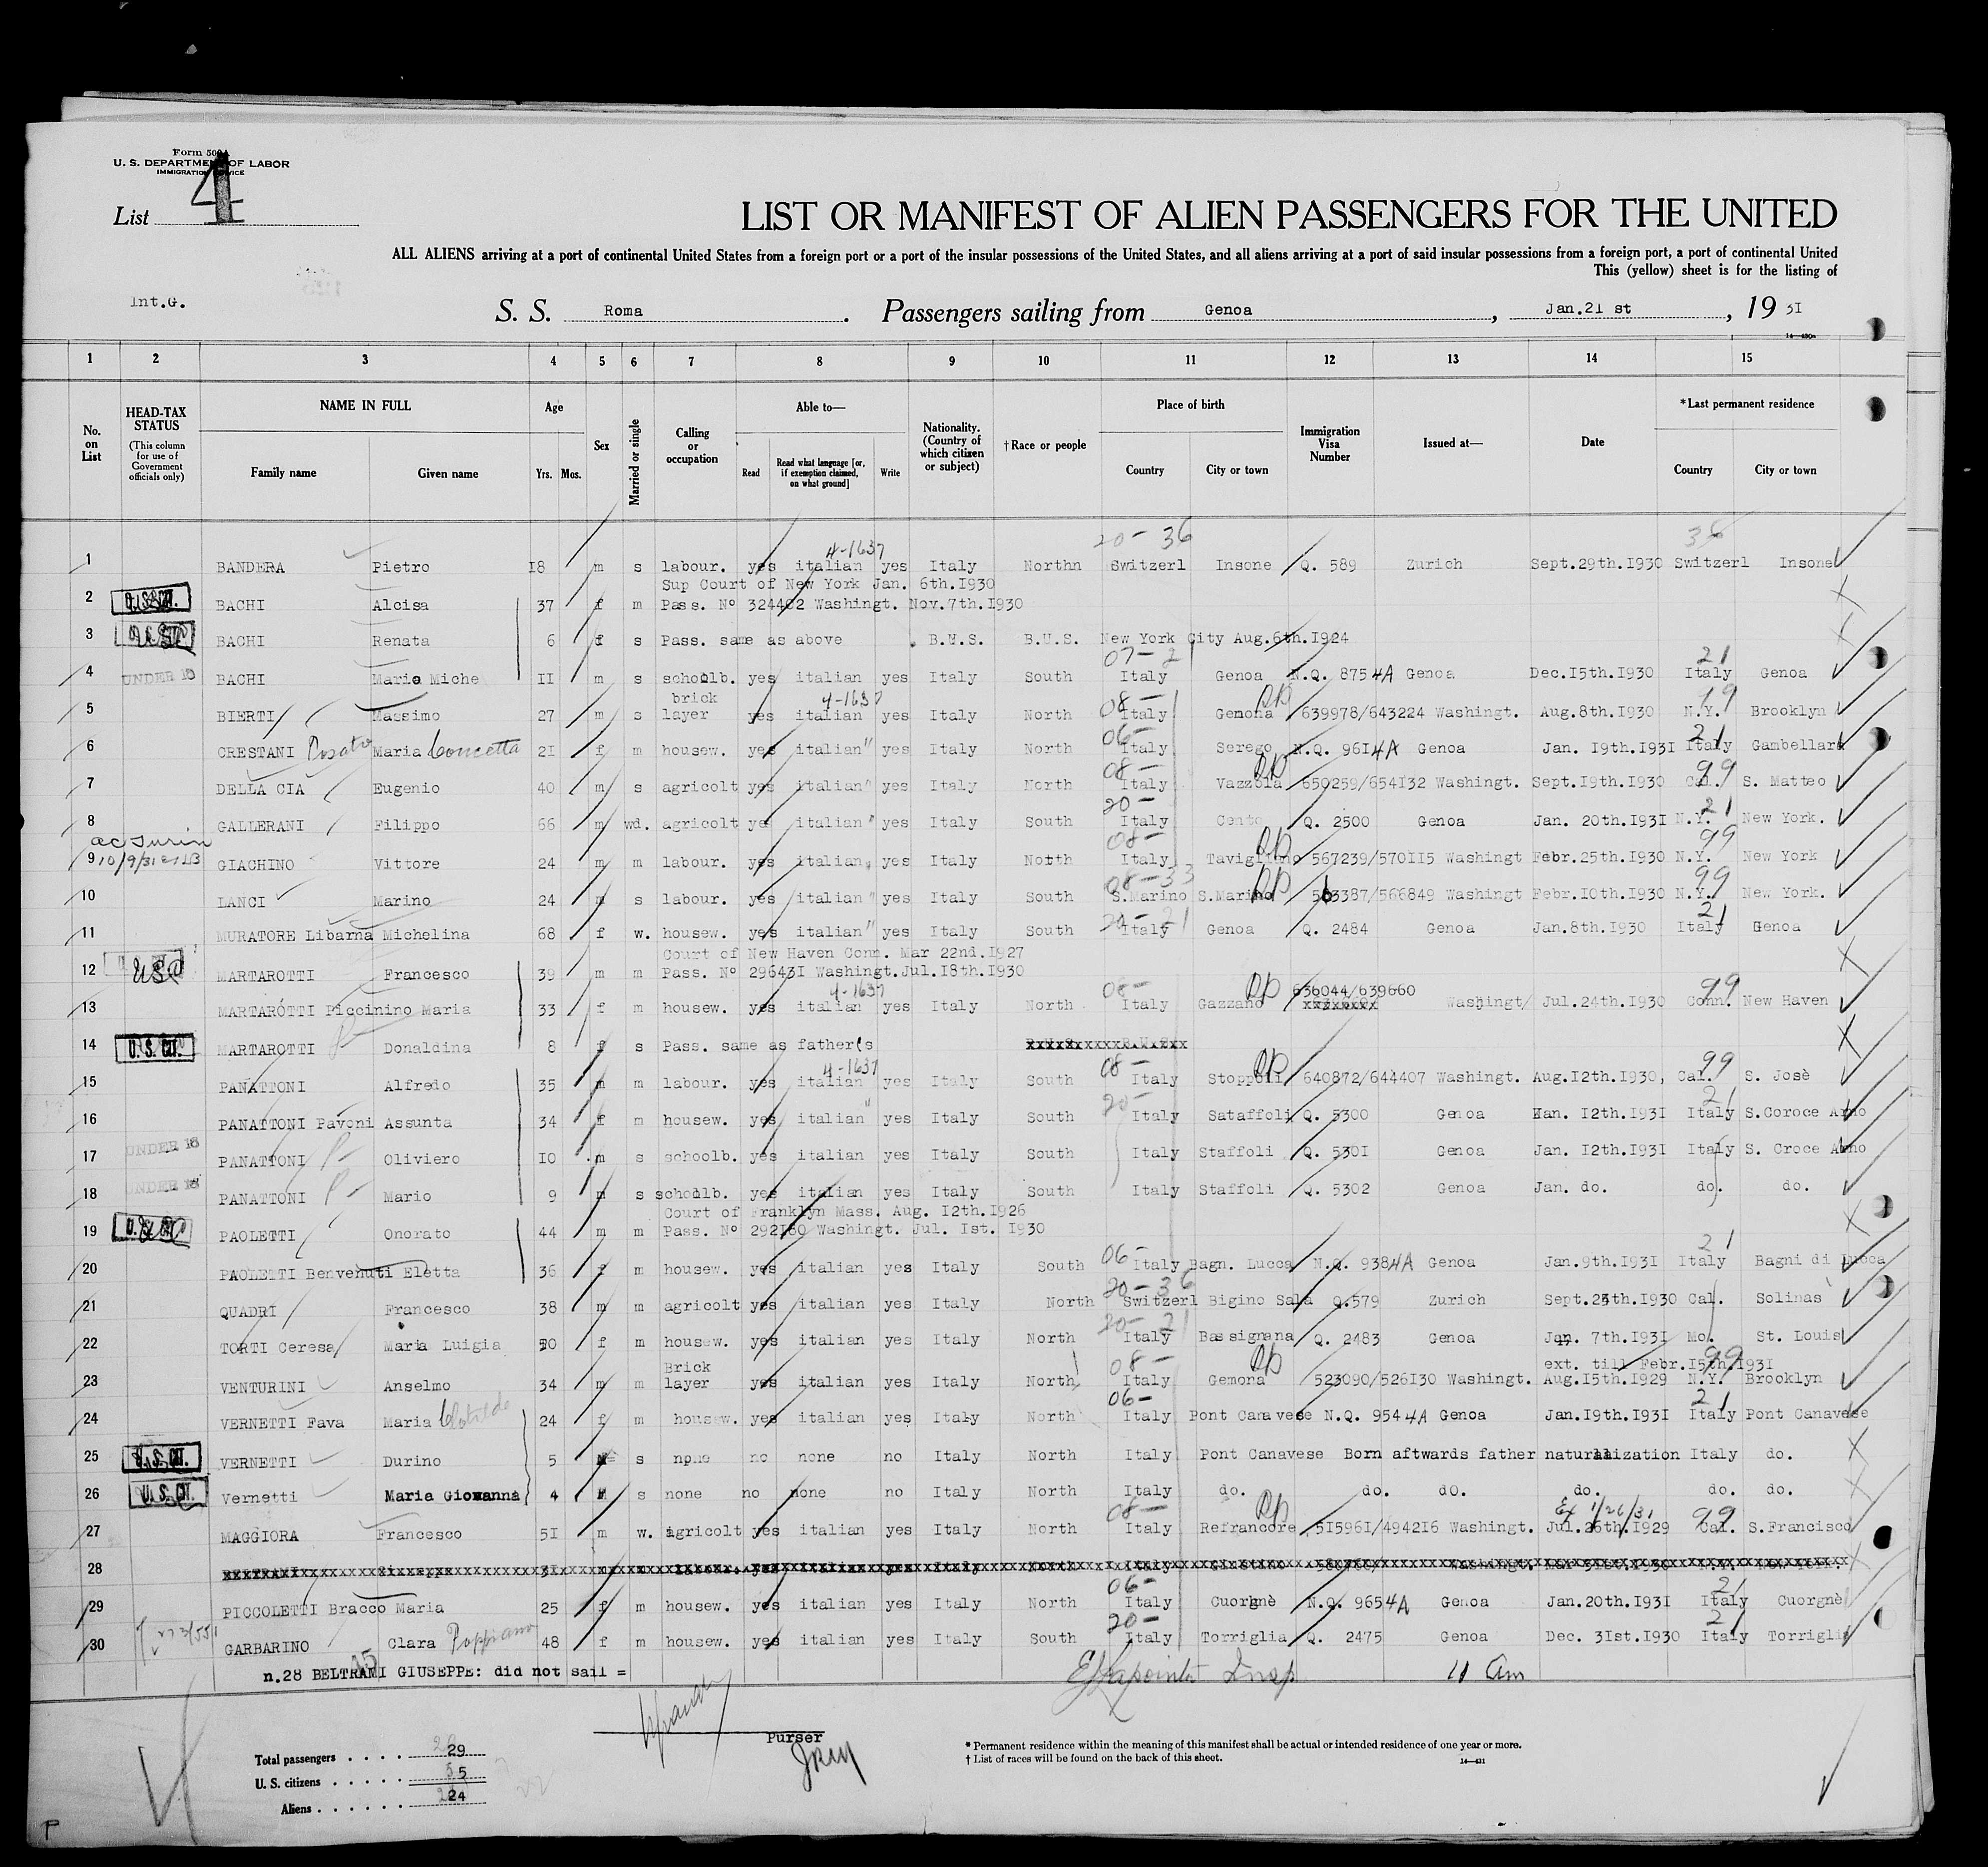 Form 500A
U. S. DEPARTMENT OF LABOR
IMMIGRATION SERVICE
List 4
LIST OR MANIFEST OF ALIEN PASSENGERS FOR THE UNITED
ALL ALIENS arriving at a port of continental United States from a foreign port or a port of the insular possessions of the United States, and all aliens arriving at a port of said insular possessions from a foreign port, a port of continental United
This (yellow) sheet is for the listing of
Int.G.
S. S. Roma. Passengers sailing from Genoa, Jan.21 st, 19 3I
14—430a
1 2 3 4 5 6 7 8 9 10 11 12 13 14 15
No. on List
HEAD-TAX STATUS (This column for use of Government officials only)
NAME IN FULL Family name Given name
Age Yrs. Mos.
Sex
Married or single
Calling or occupation
Able to— Read Read what language [or, if exemption claimed, on what ground] Write
Nationality. (Country of which citizen or subject)
†Race or people
Place of birth Country City or town
Immigration Visa Number
Issued at—
Date
*Last permanent residence Country City or town
20- 36
4-1637
1 BANDERA Pietro I8 m s labour. yes italian yes Italy Northn Switzerl Insone Q. 589 Zurich Sept.29th.I930 Switzerl Insone
Sup Court of New York Jan. 6th.I930
2 U.S.CIT. BACHI Alcisa 37 f m Pass. Nº 324402 Washingt. Nov.7th.I930
3 BACHI Renata 6 f s Pass. same as above B.U.S. B.U.S. New York City Aug.6th.I924
07- 2 21
4 UNDER 16 BACHI Mario Miche II m s schoolb. yes italian yes Italy South Italy Genoa N.Q. 875 4A Genoa Dec.I5th.I930 Italy Genoa
brick 4-1637 08-
5 BIERTI Massimo 27 m s layer yes italian yes Italy North Italy Gemona 639978/643224 Washingt. Aug.8th.I930 N.Y. Brooklyn
06- 21
6 CRESTANI Rosato Maria Concetta 2I f m housew. yes italian" yes Italy North Italy Serego N.Q. 96I 4A Genoa Jan. I9th.I93I Italy Gambellara
08- 99
7 DELLA CIA Eugenio 40 m s agricolt yes italian" yes Italy North Italy Vazzola 650259/654I32 Washingt. Sept.I9th.I930 Cal. S. Matteo
20- 21
8 GALLERANI Filippo 66 m wd. agricolt yes italian" yes Italy South Italy Cento Q. 2500 Genoa Jan. 20th.I93I N.Y. New York.
08- 99
9 10/9/31 GIACHINO Vittore 24 m m labour. yes italian yes Italy North Italy Tavigliano 567239/570II5 Washingt Febr.25th.I930 N.Y. New York
08-33 99
10 LANCI Marino 24 m s labour. yes italian" yes Italy South S.Marino S.Marino 563387/566849 Washingt Febr.I0th.I930 N.Y. New York.
20- 21 21
11 MURATORE Libarna Michelina 68 f w. housew. yes italian" yes Italy South Italy Genoa Q. 2484 Genoa Jan.8th.I930 Italy Genoa
Court of New Haven Conn. Mar 22nd.I927
12 USC MARTAROTTI Francesco 39 m m Pass. Nº 29643I Washingt.Jul.I8th.I930
4-1637 08- 636044/639660 99
13 MARTAROTTI Piccinino Maria 33 f m housew. yes italian yes Italy North Italy Gazzano xxxxxxxx Washingt Jul.24th.I930 Conn. New Haven
14 U.S.CIT. MARTAROTTI Donaldina 8 f s Pass. same as father(s
4-1637 08- 99
15 PANATTONI Alfredo 35 m m labour. yes italian yes Italy South Italy Stoppoli 640872/644407 Washingt. Aug.I2th.I930, Cal. S. Josè
20- 21
16 PANATTONI Pavoni Assunta 34 f m housew. yes italian" yes Italy South Italy Sataffoli Q. 5300 Genoa Jan. I2th.I93I Italy S.Coroce Arno
17 UNDER 16 PANATTONI Oliviero I0 m s schoolb. yes italian yes Italy South Italy Staffoli Q. 530I Genoa Jan. I2th.I93I Italy S. Croce Arno
18 UNDER 16 PANATTONI Mario 9 m s schoolb. yes italian yes Italy South Italy Staffoli Q. 5302 Genoa Jan. do. do. do.
Court of Franklyn Mass. Aug. I2th.I926
19 PAOLETTI Onorato 44 m m Pass. Nº 292I80 Washingt. Jul. Ist. I930
06- 21
20 PAOLETTI Benvenuti Eletta 36 f m housew. yes italian yes Italy South Italy Bagn. Lucca N.Q. 938 4A Genoa Jan.9th.I93I Italy Bagni di Lucca
20-36
21 QUADRI Francesco 38 m m agricolt yes italian yes Italy North Switzerl Bigino Sala Q.579 Zurich Sept.25th.I930 Cal. Solinas
20- 21
22 TORTI Ceresa Maria Luigia 50 f m housew. yes italian yes Italy North Italy Bassignana Q. 2483 Genoa Jan. 7th.I93I Mo. St. Louis
Brick 08- ext. till Febr.I5th.I93I 99
23 VENTURINI Anselmo 34 m m layer yes italian yes Italy North Italy Gemona 523090/526I30 Washingt. Aug.I5th.I929 N.Y. Brooklyn
06- 21
24 VERNETTI Fava Maria Clotilde 24 f m housew. yes italian yes Italy North Italy Pont Canavese N.Q. 954 4A Genoa Jan.I9th.I93I Italy Pont Canavese
25 U.S.CIT. VERNETTI Durino 5 s none no none no Italy North Italy Pont Canavese Born aftwards father naturalization Italy do.
26 U.S.CIT. Vernetti Maria Giovanna 4 s none no none no Italy North Italy do. do. dO. do. do. do.
08- Ex 1/26/31 99
27 MAGGIORA Francesco 5I m w. agricolt yes italian yes Italy North Italy Refrancore 5I596I/4942I6 Washingt. Jul.26th.I929 Cal. S.Francisco
28
06- 21
29 PICCOLETTI Bracco Maria 25 f m housew. yes italian yes Italy North Italy Cuorgnè N.Q. 965 4A Genoa Jan.20th.I93I Italy Cuorgnè
20- 21
30 GARBARINO Clara Poppiano 48 f m housew. yes italian yes Italy South Italy Torriglia Q. 2475 Genoa Dec. 3Ist.I930 Italy Torriglia
n.28 BELTRAMI GIUSEPPE: did not sail =
Lapointe Insp 11 Am
Purser
Total passengers . . . . 29
U. S. citizens . . . . . 5
Aliens . . . . . . 24
* Permanent residence within the meaning of this manifest shall be actual or intended residence of one year or more.
† List of races will be found on the back of this sheet.
14—431